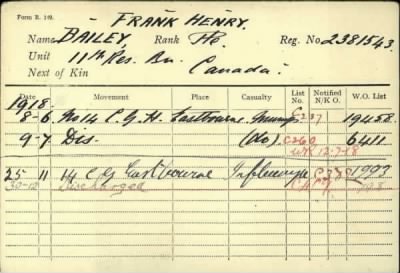 Form R. 149.
FRANK HENRY.
Name BAILEY Rank Pte. Reg. No. 2381543
Unit 11th Res. Bn.
Next of Kin Canada.
Date Movement Place Casualty List No. Notified N/K O. W.O. List
1918.
8-6 No 14 C.G.H. Eastbourne. Mumps C237 19458.
9-7 Dis. (do) C260 6411
12-7-18
25 11 14 C G Eastbourne Influenza 1993
30-12 Discharged